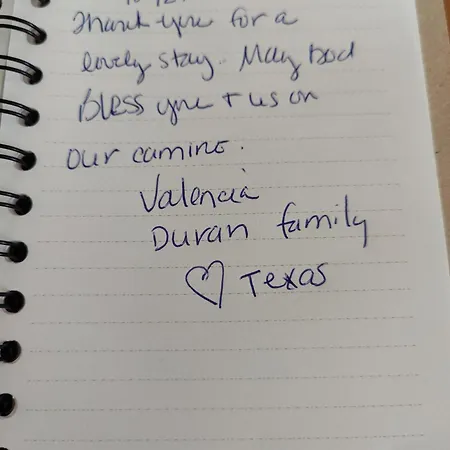 Thank you for a
lovely stay. May God
Bless you + us on
our camino.
Valencia
Duran family
♡ Texas